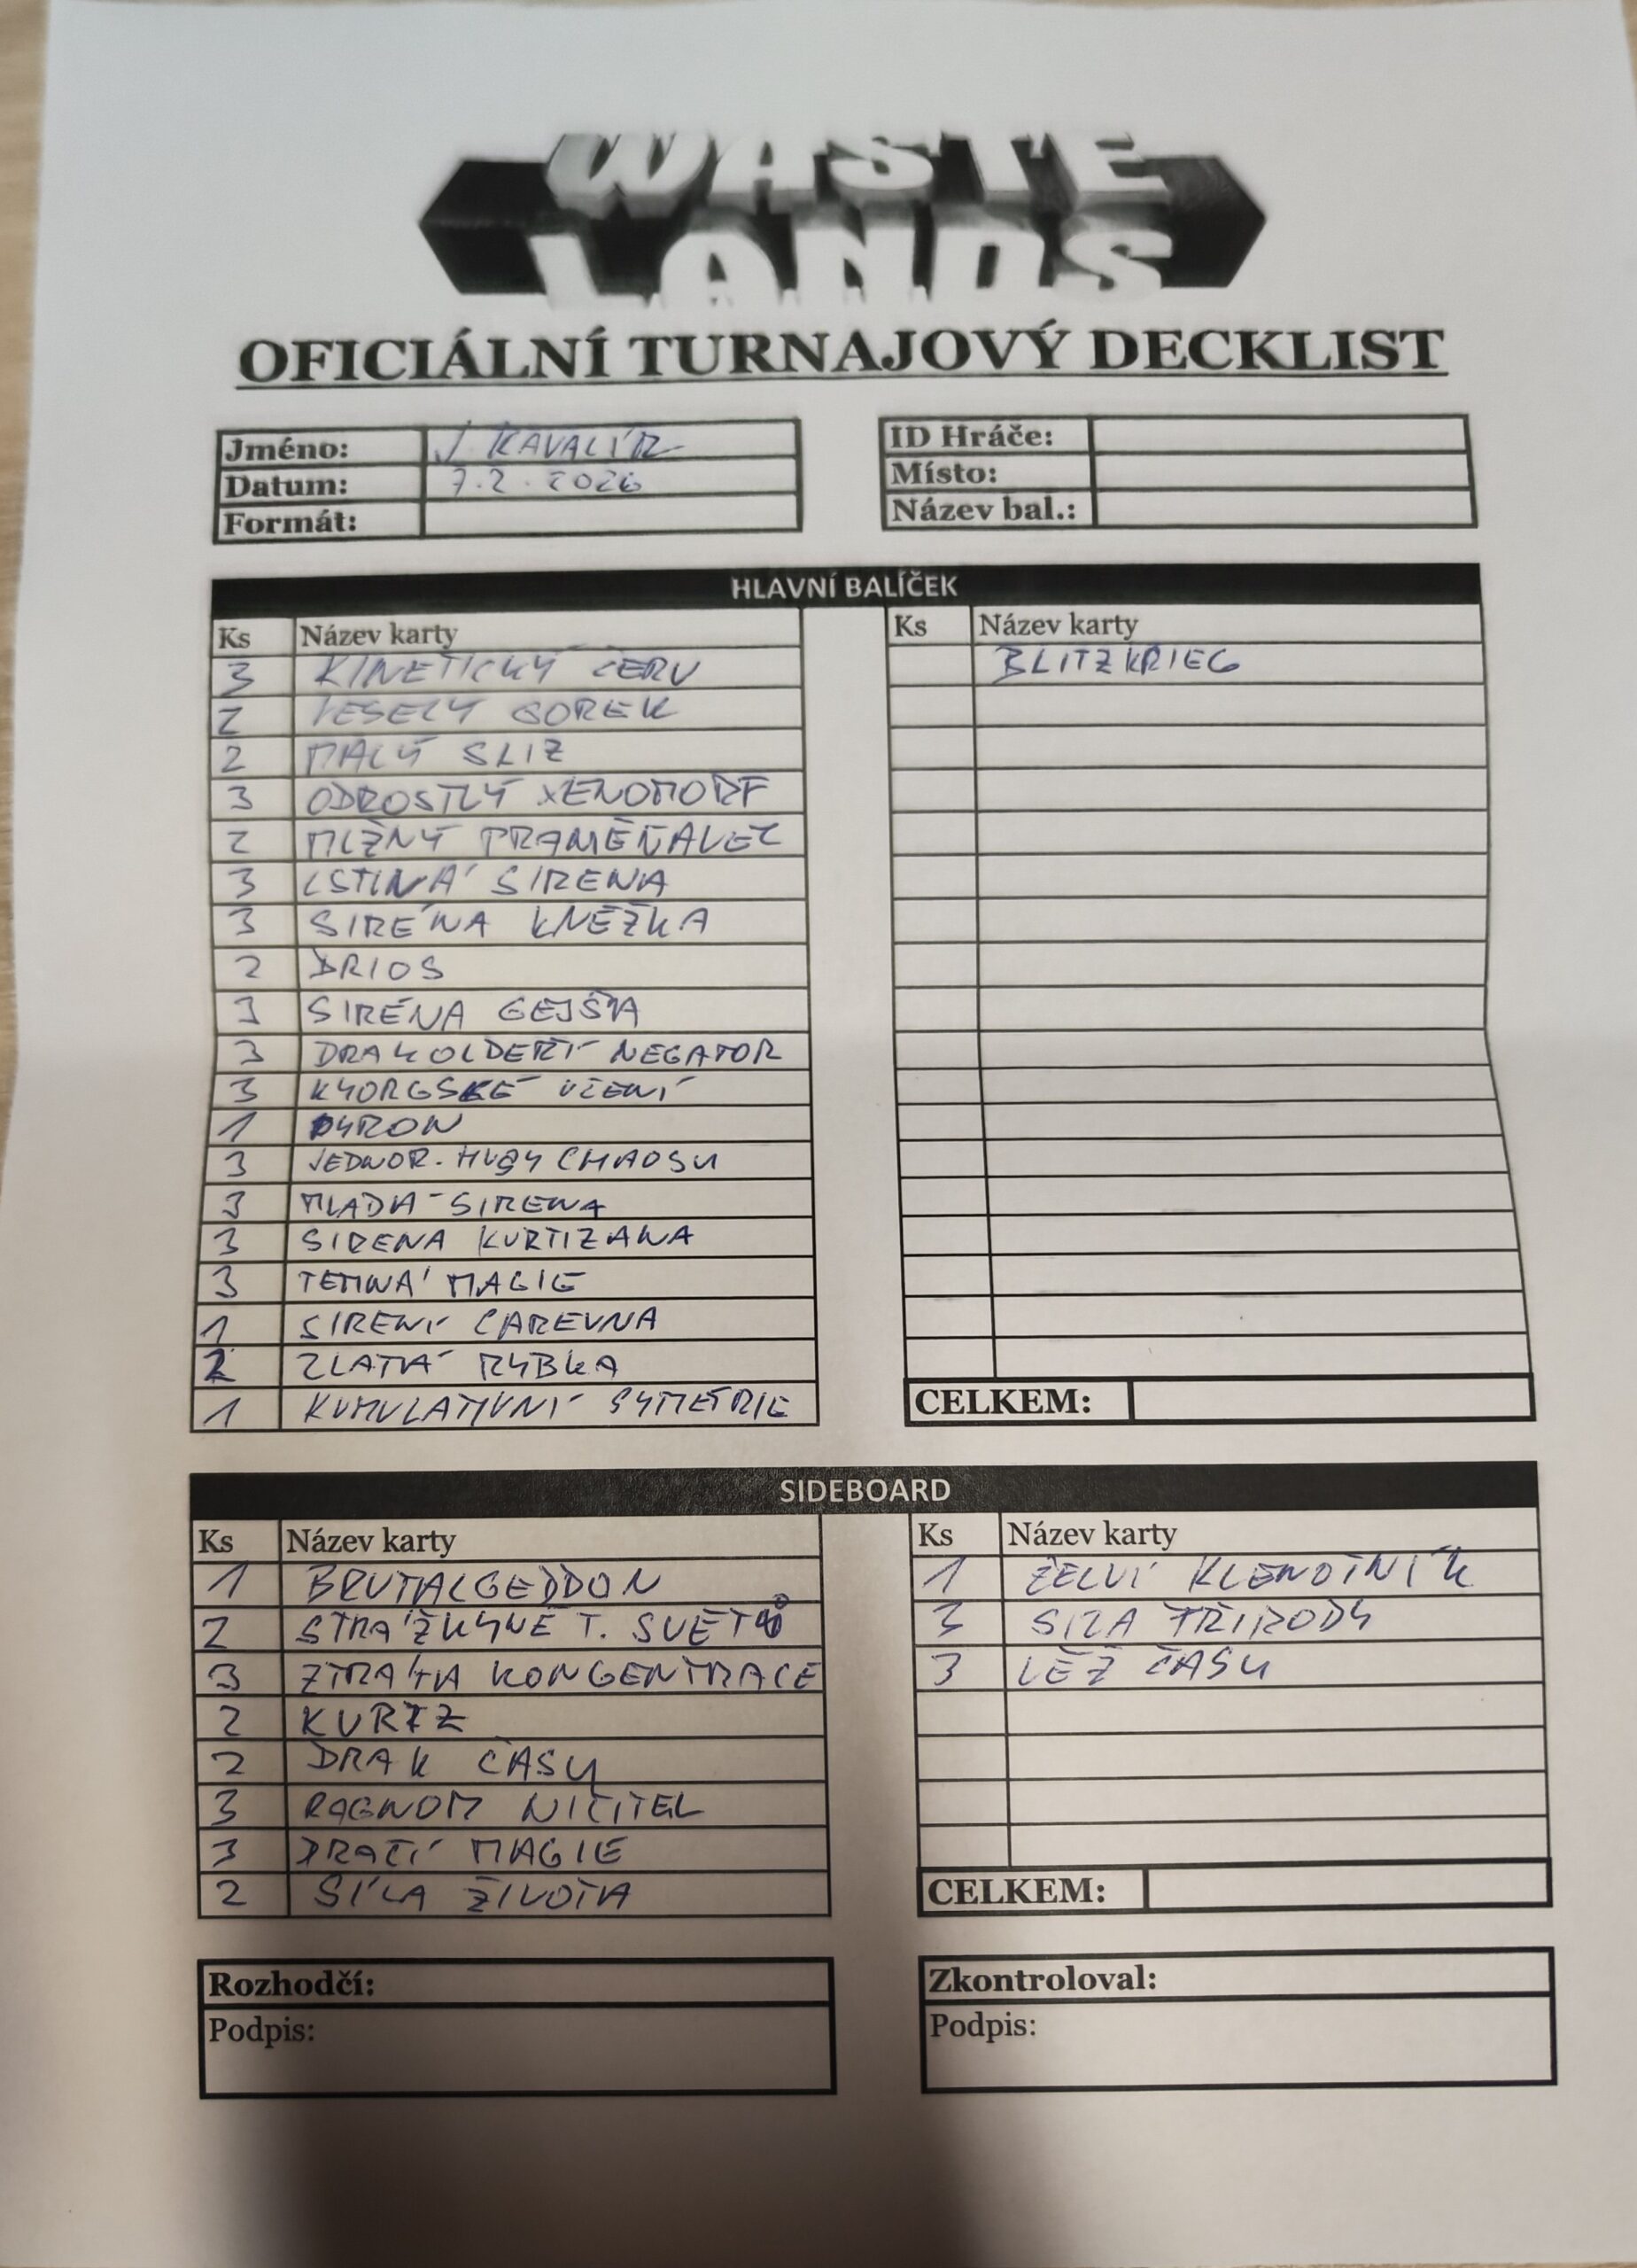 WASTE
LANDS
OFICIÁLNÍ TURNAJOVÝ DECKLIST
Jméno: J KAVALÍR
Datum: 7.2.2026
Formát:
ID Hráče:
Místo:
Název bal.:
HLAVNÍ BALÍČEK
Ks Název karty
3 KINETICKÝ ČERV
2 VESELÝ GOREK
2 MALÝ SLIZ
3 ODROSTLÝ XENOMORF
2 MLŽNÝ PRAMĚŇAVEC
3 LSTIVÁ SIRENA
3 SIRÉNA KNĚŽKA
2 DRIOS
3 SIRÉNA GEJŠA
3 DRAKOLDEŘÍ NEGATOR
3 KYORGSKÉ UČENÍ
1 DYRON
3 JEDNOR. HLUBY CHAOSU
3 MLADÁ SIRENA
3 SIRENA KURTIZANA
3 TEMNÁ MAGIE
1 SIRENÍ CAREVNA
2 ZLATÁ RYBKA
1 KUMULATIVNÍ SYMETRIE
Ks Název karty
BLITZKRIEG
CELKEM:
SIDEBOARD
Ks Název karty
1 BRUTALGEDDON
2 STRÁŽKYNĚ T. SVĚTŮ
3 ZTRÁTA KONCENTRACE
2 KURTZ
2 DRAK ČASU
3 RAGNOM NIČITEL
3 DRAČÍ MAGIE
2 SÍLA ŽIVOTA
Ks Název karty
1 ŽELVÍ KLENOTNÍK
3 SÍLA PŘÍRODY
3 LÉŽ ČASU
CELKEM:
Rozhodčí:
Podpis:
Zkontroloval:
Podpis: